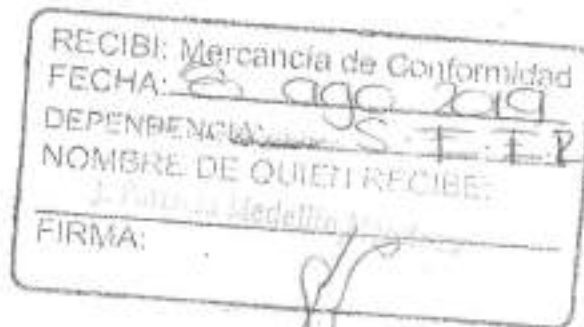 RECIBI: Mercancía de Conformidad
FECHA: 6 ago 2019
DEPENDENCIA:
NOMBRE DE QUIEN RECIBE:
Medellín
FIRMA: